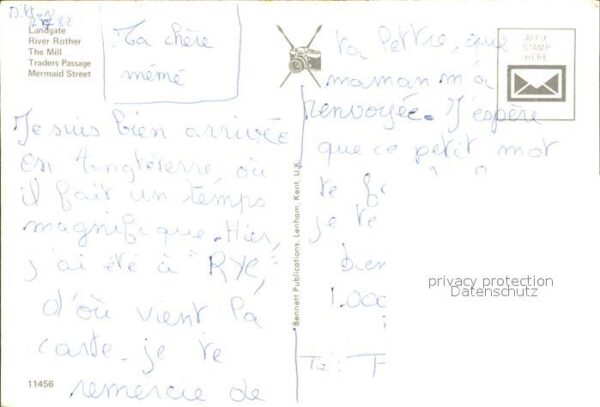 Landgate
River Rother
The Mill
Traders Passage
Mermaid Street
Ma chère
mémé
Je suis bien arrivée
en Angleterre, où
il fait un temps
magnifique. Hier,
j'ai été à "RYE,"
d'où vient la
carte. je te
remercie de
11456
Bennett Publications, Lenham, Kent, U.K.
ta lettre, que
maman m'a
renvoyée. J'espère
que ce petit mot
te
je te
bien
1.000
AFFIX
STAMP
HERE
privacy protection
Datenschutz